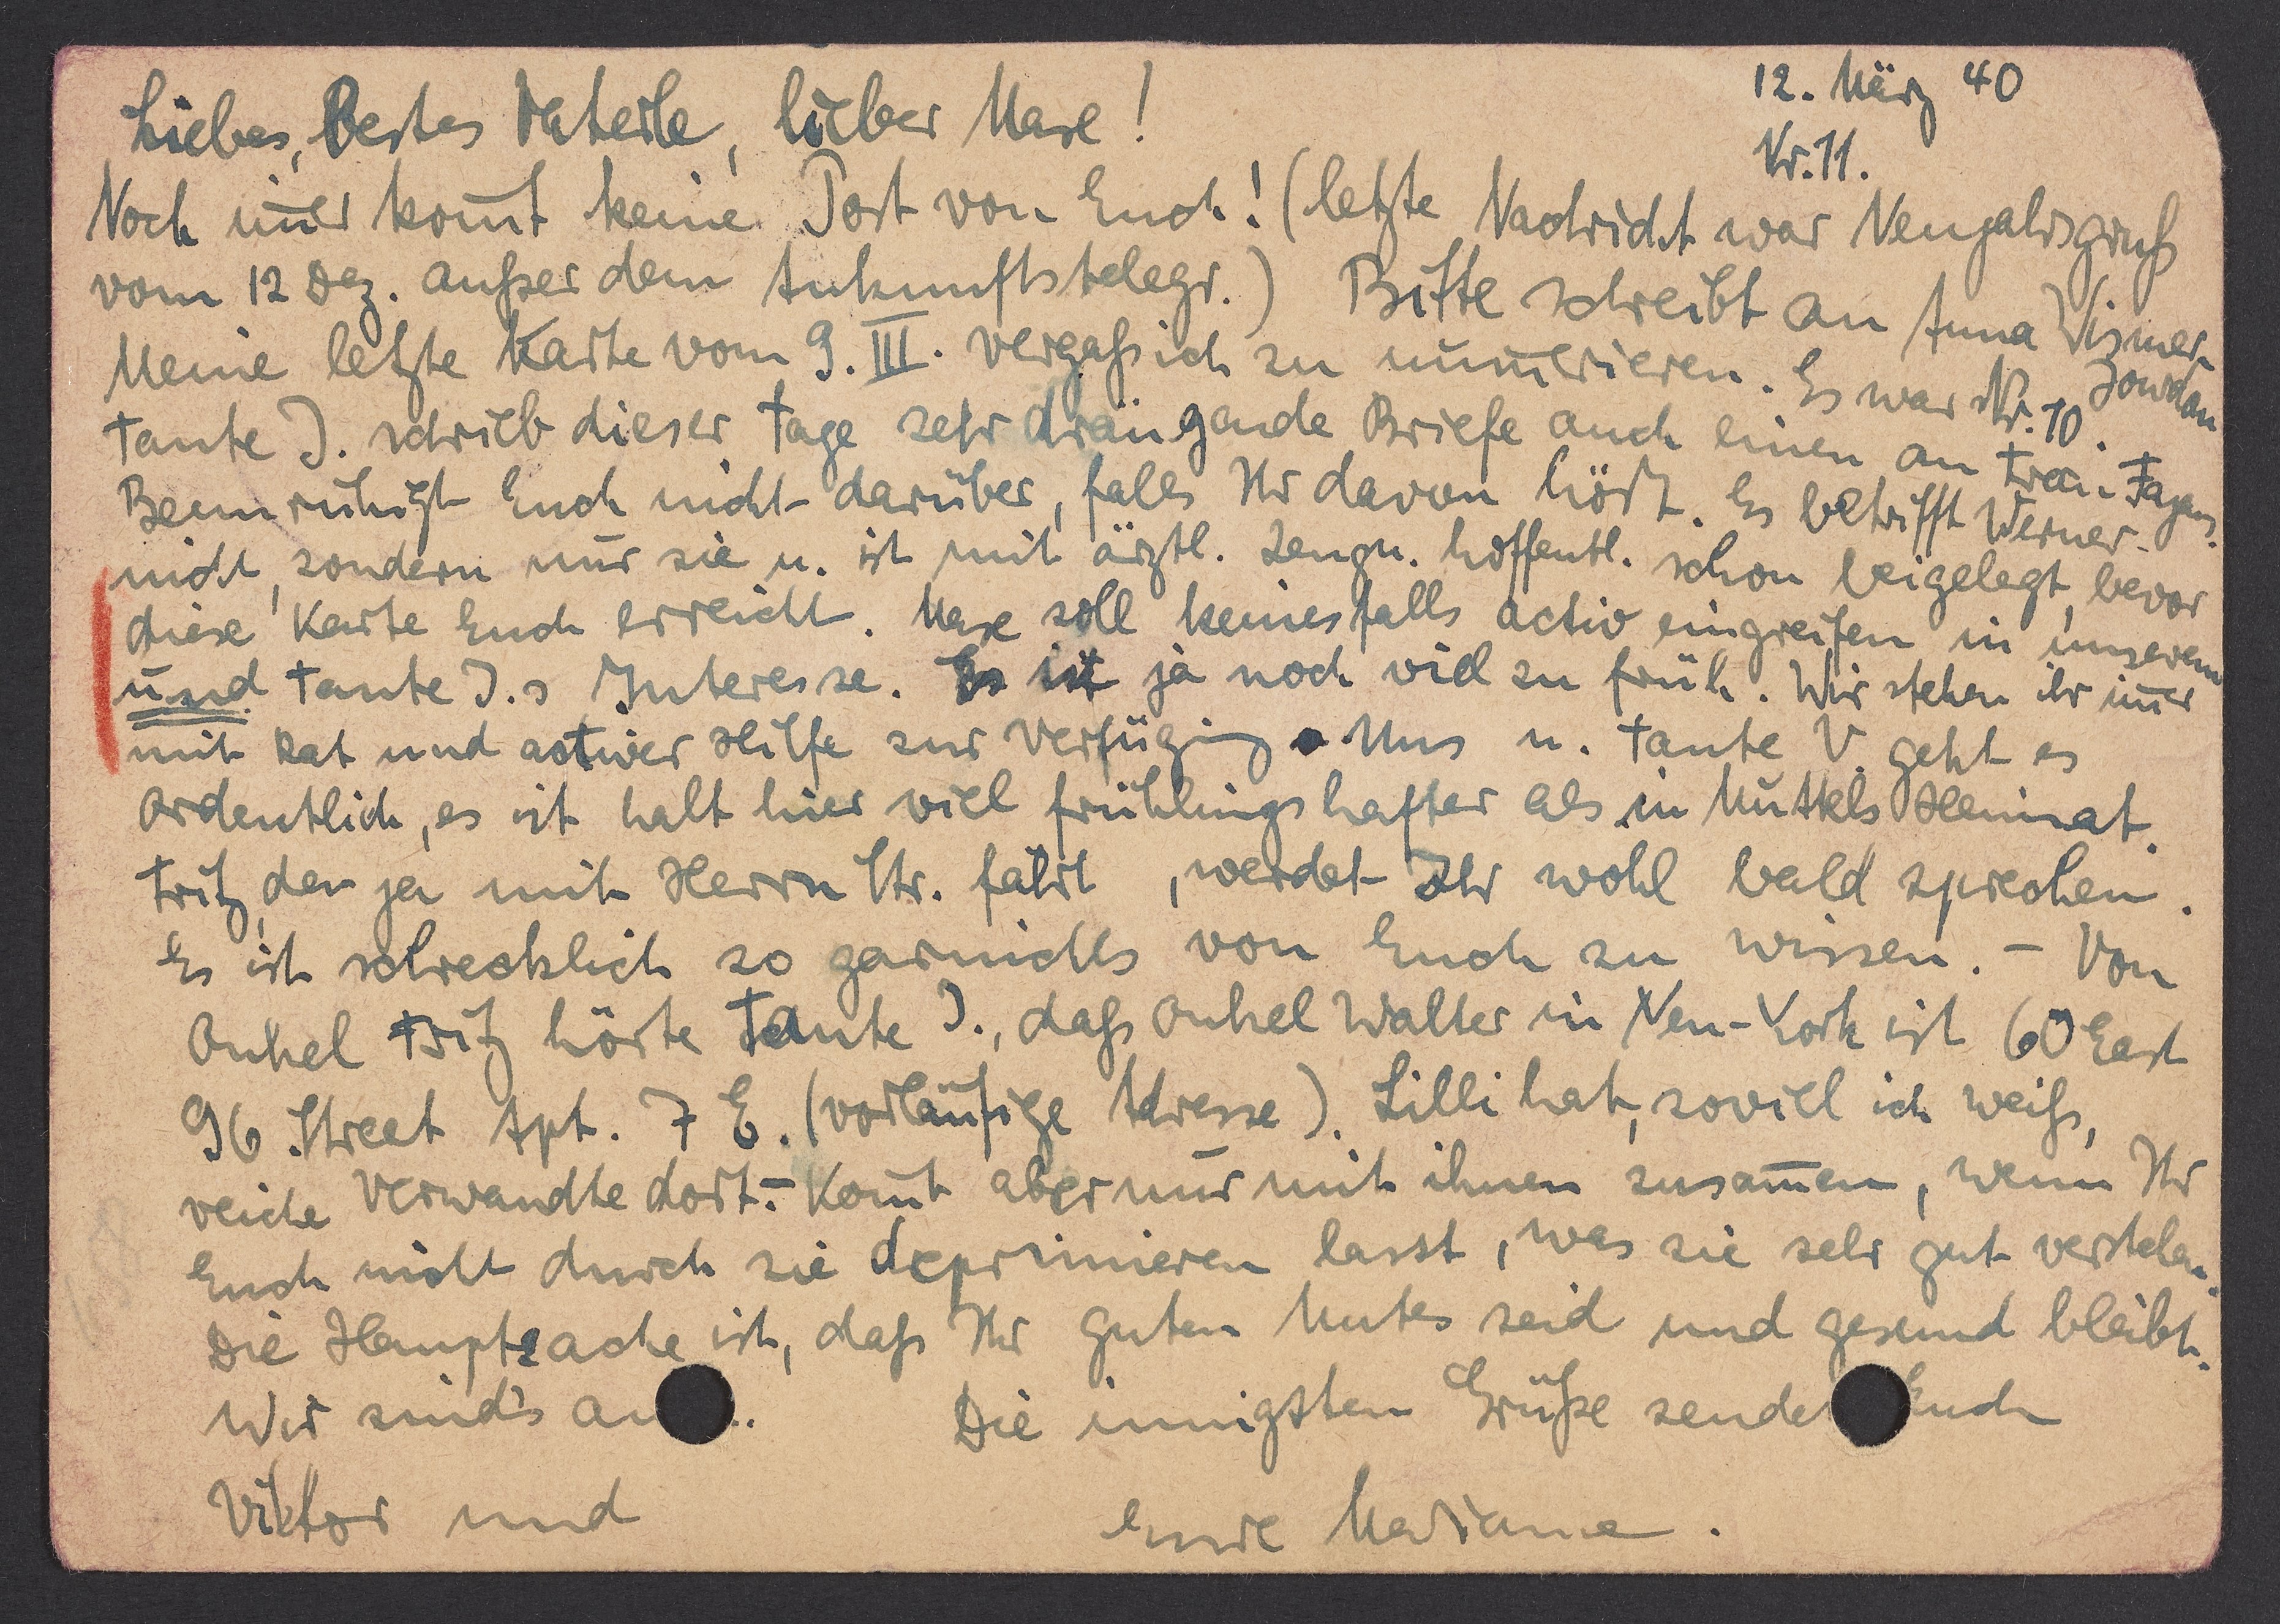 12. März 40
Nr. 11.
Liebes, bestes Vaterle, lieber Maxe!
Noch im̄er kom̄t keine Post von Euch! (letzte Nachricht war Neujahrsgruß
vom 12 Dez. außer dem Ankunftstelegr.) Bitte schreibt an Anna Wismer-
Jourdan
Meine letzte Karte vom 9. III. vergaß ich zu num̄erieren. Es war Nr. 10.
Tante J. schrieb dieser Tage sehr drängende Briefe auch einen an Frau Fajans.
Beunruhigt Euch nicht darüber, falls Ihr davon hört. Es betrifft Werner
nicht, sondern nur sie u. ist mit ärztl. Zeugn. hoffentl. schon beigelegt, bevor
diese Karte Euch erreicht. Maxe soll keinesfalls activ eingreifen in unserem
und Tante J.s Interesse. Es ist ja noch viel zu früh. Wir stehen ihr im̄er
mit Rat und activer Hilfe zur Verfügung. Uns u. Tante V. geht es
ordentlich, es ist halt hier viel frühlingshafter als in Muttels Heimat.
Fritz, der ja mit Herrn Str. fährt, werdet Ihr wohl bald sprechen.
Es ist schrecklich so garnichts von Euch zu wissen. – Von
Onkel Fritz hörte Tante J., daß Onkel Walter in New-York ist 60 East
96 Street Apt. 7 E. (vorläufige Adresse). Lilli hat, soviel ich weiß,
reiche Verwandte dort. – Kom̄t aber nur mit ihnen zusam̄en, wenn Ihr
Euch nicht durch sie deprimieren lasst, was sie sehr gut verstehen.
Die Hauptsache ist, daß Ihr guten Mutes seid und gesund bleibt.
Wir sind's .. Die innigsten Grüße senden Euch
Viktor und Eure Mariane.